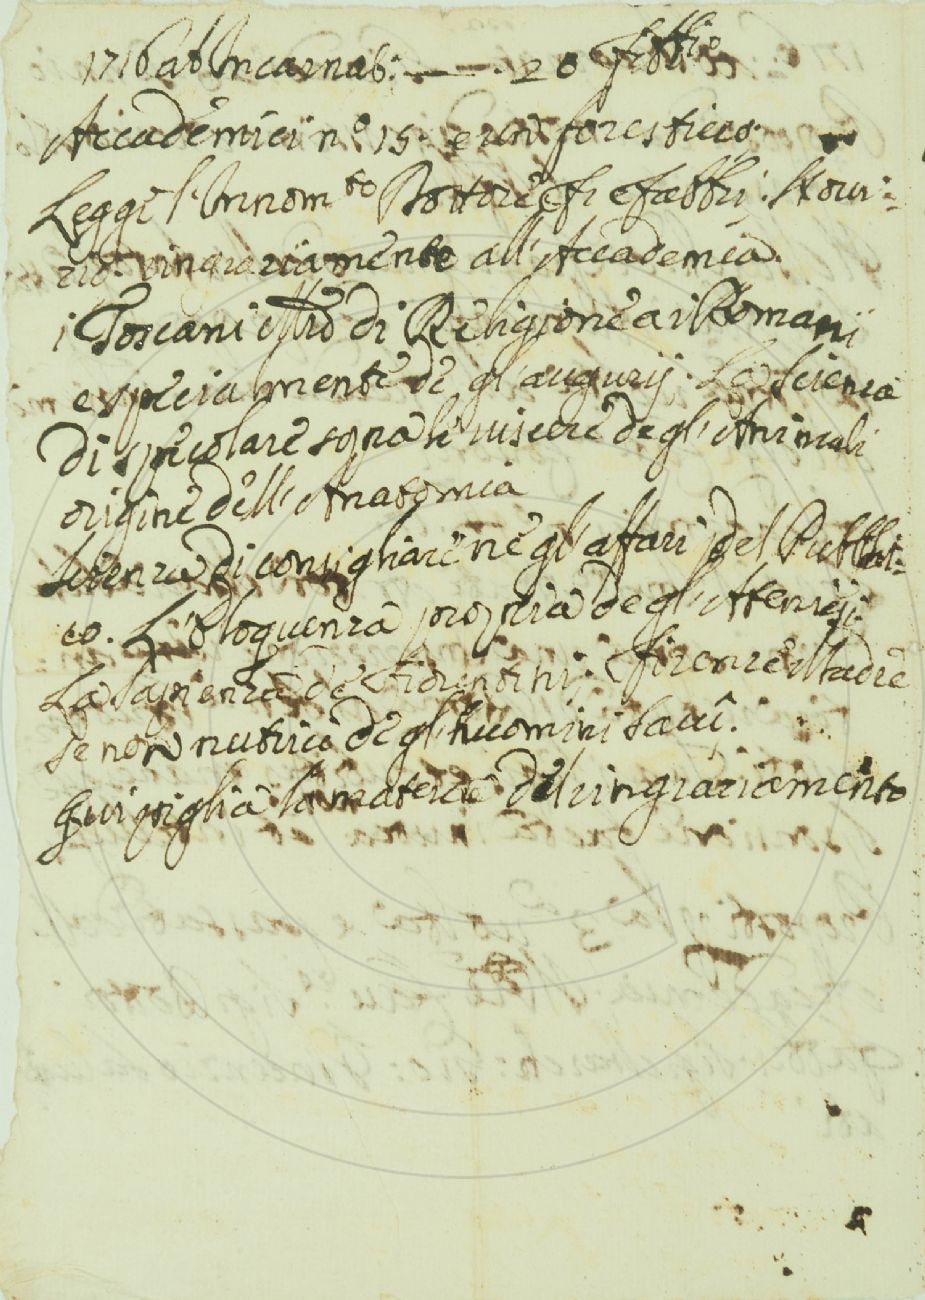 1716 ab Incarnat: —— . 20 Febb.º
Accademici n.º 15. e un forestiero.
Legge l'Innom.to Dottore
ringraziamente all'Accademia.
i Toscani Mri di Religione a i Romani
e speciamente de gl'augurij. La Scienza
di specolare sopra le viscere degl'Animali
origine dell'Anatomia
Scienza di consigliare ne gl'affari del Pubbli-
co. L'Eloquenza propria de gl'Ateniesi.
La sapienza de Fiorentini. Firenze Madre
se non nutrice de gl'huomini savi.
Qui piglia la materia del ringraziamento